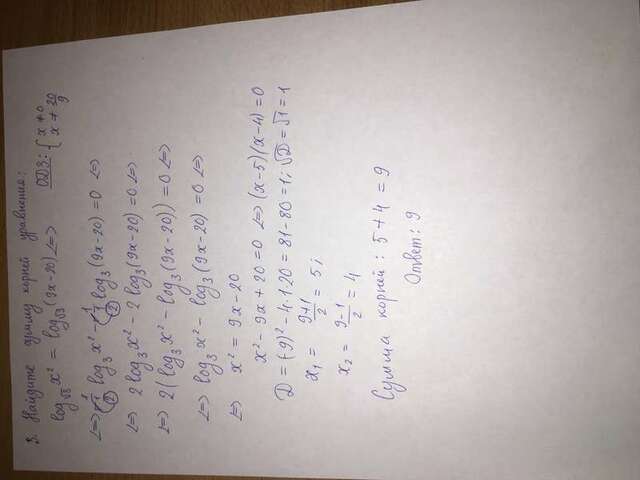 3. Найдите сумму корней уравнения:
log_√3 x² = log_√3 (9x-20) ⇔ ОДЗ: { x ≠ 0
x ≠ 20/9
⇔ 1/(1/2) log₃ x² - 1/(1/2) log₃ (9x-20) = 0 ⇔
⇔ 2 log₃ x² - 2 log₃ (9x-20) = 0 ⇔
⇔ 2 (log₃ x² - log₃ (9x-20)) = 0 ⇔
⇔ log₃ x² - log₃ (9x-20) = 0 ⇔
⇔ x² = 9x - 20
x² - 9x + 20 = 0 ⇔ (x-5)(x-4) = 0
D = (-9)² - 4·1·20 = 81 - 80 = 1; √D = √1 = 1
x₁ = (9+1)/2 = 5;
x₂ = (9-1)/2 = 4
Сумма корней: 5 + 4 = 9
Ответ: 9